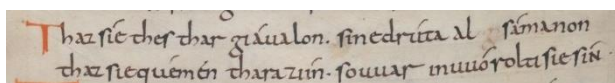 Thaz sie thes thar giáualon. sinedruta al sámanon
thaz siequémén tharaziin. souuar inuuóroltisiesin